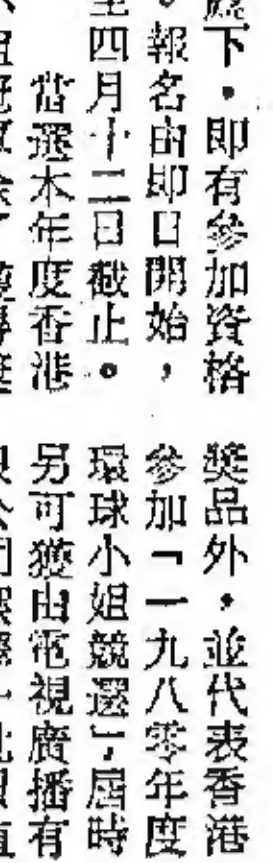 下，即有參加資格
。報名由即日開始，
至四月十二日截止。
當選本年度香港
獎品外，並代表香港
參加「一九八零年度
環球小姐競選」屆時
另可獲由電視廣播有